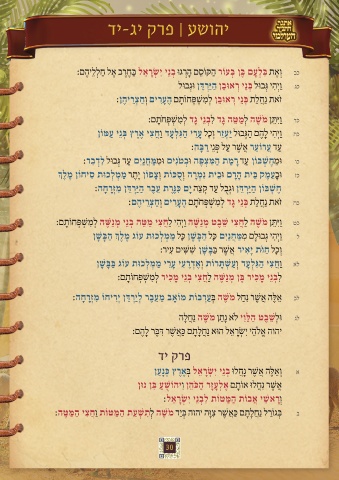 יהושע | פרק יג-יד
כב וְאֶת בִּלְעָם בֶּן בְּעוֹר הַקּוֹסֵם הָרְגוּ בְנֵי יִשְׂרָאֵל בַּחֶרֶב אֶל חַלְלֵיהֶם:
כג וַיְהִי גְּבוּל בְּנֵי רְאוּבֵן הַיַּרְדֵּן וּגְבוּל
זֹאת נַחֲלַת בְּנֵי רְאוּבֵן לְמִשְׁפְּחוֹתָם הֶעָרִים וְחַצְרֵיהֶן:
כד וַיִּתֵּן מֹשֶׁה לְמַטֵּה גָד לִבְנֵי גָד לְמִשְׁפְּחֹתָם:
כה וַיְהִי לָהֶם הַגְּבוּל יַעְזֵר וְכָל עָרֵי הַגִּלְעָד וַחֲצִי אֶרֶץ בְּנֵי עַמּוֹן
עַד עֲרוֹעֵר אֲשֶׁר עַל פְּנֵי רַבָּה:
כו וּמֵחֶשְׁבּוֹן עַד רָמַת הַמִּצְפֶּה וּבְטֹנִים וּמִמַּחֲנַיִם עַד גְּבוּל לִדְבִר:
כז וּבָעֵמֶק בֵּית הָרָם וּבֵית נִמְרָה וְסֻכּוֹת וְצָפוֹן יֶתֶר מַמְלְכוּת סִיחוֹן מֶלֶךְ
חֶשְׁבּוֹן הַיַּרְדֵּן וּגְבֻל עַד קְצֵה יָם כִּנֶּרֶת עֵבֶר הַיַּרְדֵּן מִזְרָחָה:
כח זֹאת נַחֲלַת בְּנֵי גָד לְמִשְׁפְּחֹתָם הֶעָרִים וְחַצְרֵיהֶם:
כט וַיִּתֵּן מֹשֶׁה לַחֲצִי שֵׁבֶט מְנַשֶּׁה וַיְהִי לַחֲצִי מַטֵּה בְנֵי מְנַשֶּׁה לְמִשְׁפְּחוֹתָם:
ל וַיְהִי גְבוּלָם מִמַּחֲנַיִם כָּל הַבָּשָׁן כָּל מַמְלְכוּת עוֹג מֶלֶךְ הַבָּשָׁן
וְכָל חַוֹּת יָאִיר אֲשֶׁר בַּבָּשָׁן שִׁשִּׁים עִיר:
לא וַחֲצִי הַגִּלְעָד וְעַשְׁתָּרוֹת וְאֶדְרֶעִי עָרֵי מַמְלְכוּת עוֹג בַּבָּשָׁן
לִבְנֵי מָכִיר בֶּן מְנַשֶּׁה לַחֲצִי בְנֵי מָכִיר לְמִשְׁפְּחוֹתָם:
לב אֵלֶּה אֲשֶׁר נִחַל מֹשֶׁה בְּעַרְבוֹת מוֹאָב מֵעֵבֶר לְיַרְדֵּן יְרִיחוֹ מִזְרָחָה:
לג וּלְשֵׁבֶט הַלֵּוִי לֹא נָתַן מֹשֶׁה נַחֲלָה
יהוה אֱלֹהֵי יִשְׂרָאֵל הוּא נַחֲלָתָם כַּאֲשֶׁר דִּבֶּר לָהֶם:
פרק יד
א וְאֵלֶּה אֲשֶׁר נָחֲלוּ בְנֵי יִשְׂרָאֵל בְּאֶרֶץ כְּנָעַן
אֲשֶׁר נִחֲלוּ אוֹתָם אֶלְעָזָר הַכֹּהֵן וִיהוֹשֻׁעַ בִּן נוּן
וְרָאשֵׁי אֲבוֹת הַמַּטּוֹת לִבְנֵי יִשְׂרָאֵל:
ב בְּגוֹרַל נַחֲלָתָם כַּאֲשֶׁר צִוָּה יהוה בְּיַד מֹשֶׁה לְתִשְׁעַת הַמַּטּוֹת וַחֲצִי הַמַּטֶּה:
30